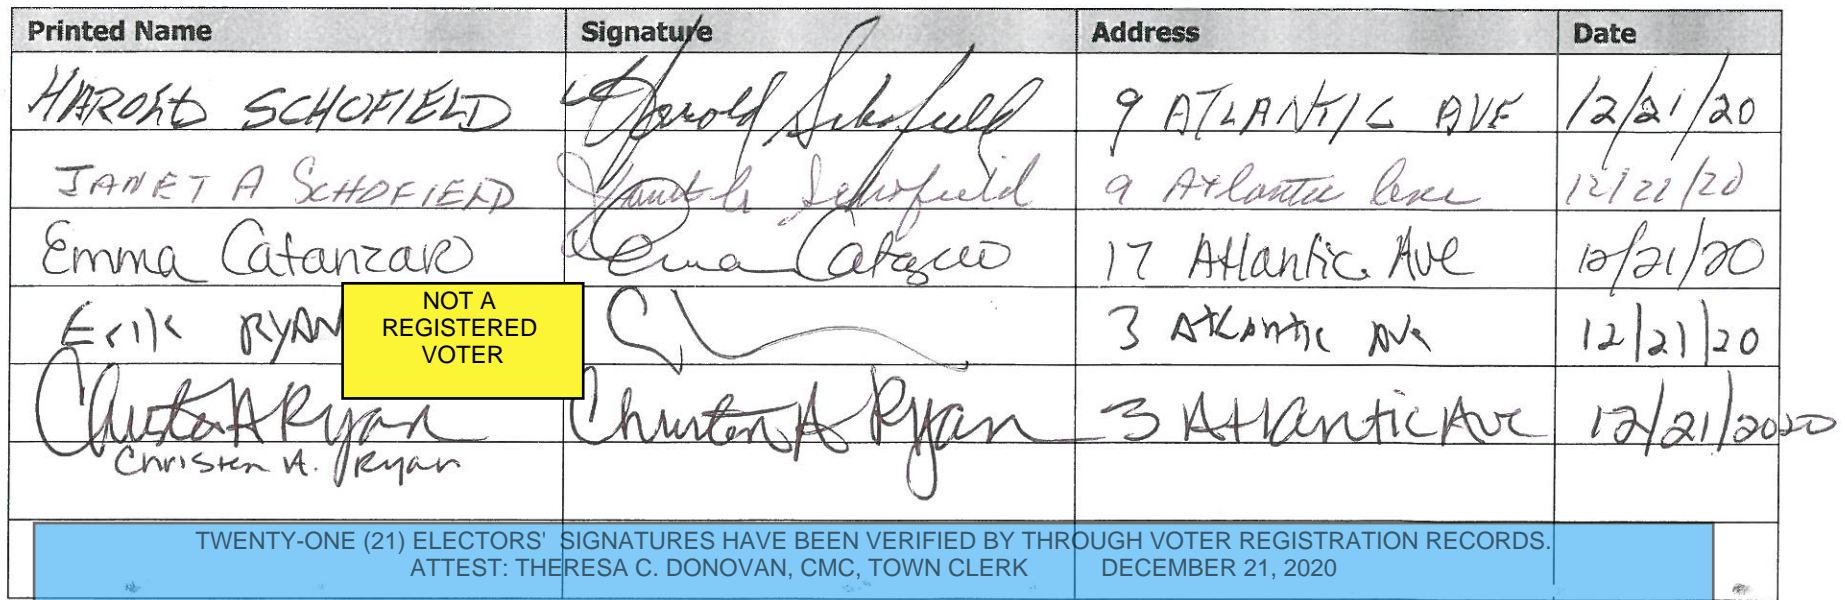 Printed Name Signature Address Date
HAROLD SCHOFIELD Harold Schofield 9 ATLANTIC AVE 12/21/20
JANET A SCHOFIELD Janet A Schofield 9 Atlantic Ave 12/21/20
Emma Catanzaro Emma 17 Atlantic Ave 12/21/20
Erik RYAN 3 Atlantic Ave 12/21/20
NOT A
REGISTERED
VOTER
Christen A Ryan Christen A Ryan 3 Atlantic Ave 12/21/2020
Christen A. Ryan
TWENTY-ONE (21) ELECTORS' SIGNATURES HAVE BEEN VERIFIED BY THROUGH VOTER REGISTRATION RECORDS.
ATTEST: THERESA C. DONOVAN, CMC, TOWN CLERK DECEMBER 21, 2020